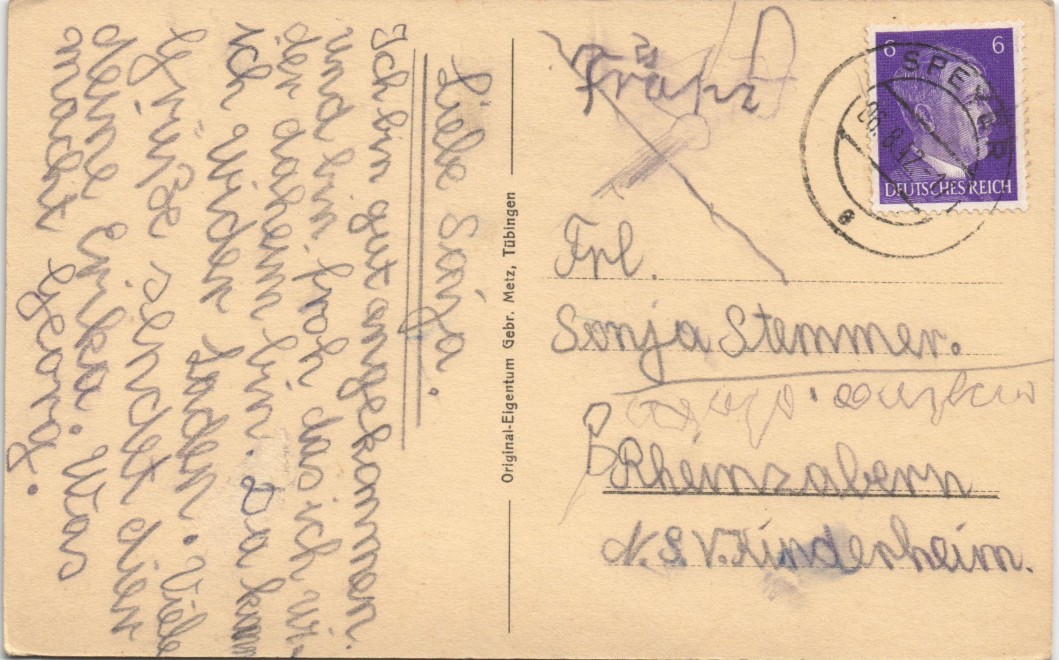 Liebe Sonja.
Ich bin gut angekommen.
und bin froh das ich wi-
der daheim bin. Da kann
ich wider baden. Viele
Grüße sendet dier
deine Erika. Was
macht Georg.
Original-Eigentum Gebr. Metz, Tübingen
6 6
SPEYER
26.8.42
DEUTSCHES REICH
a
Frl.
Sonja Stemmer.
Rheinzabern
N.S.V. Kinderheim.